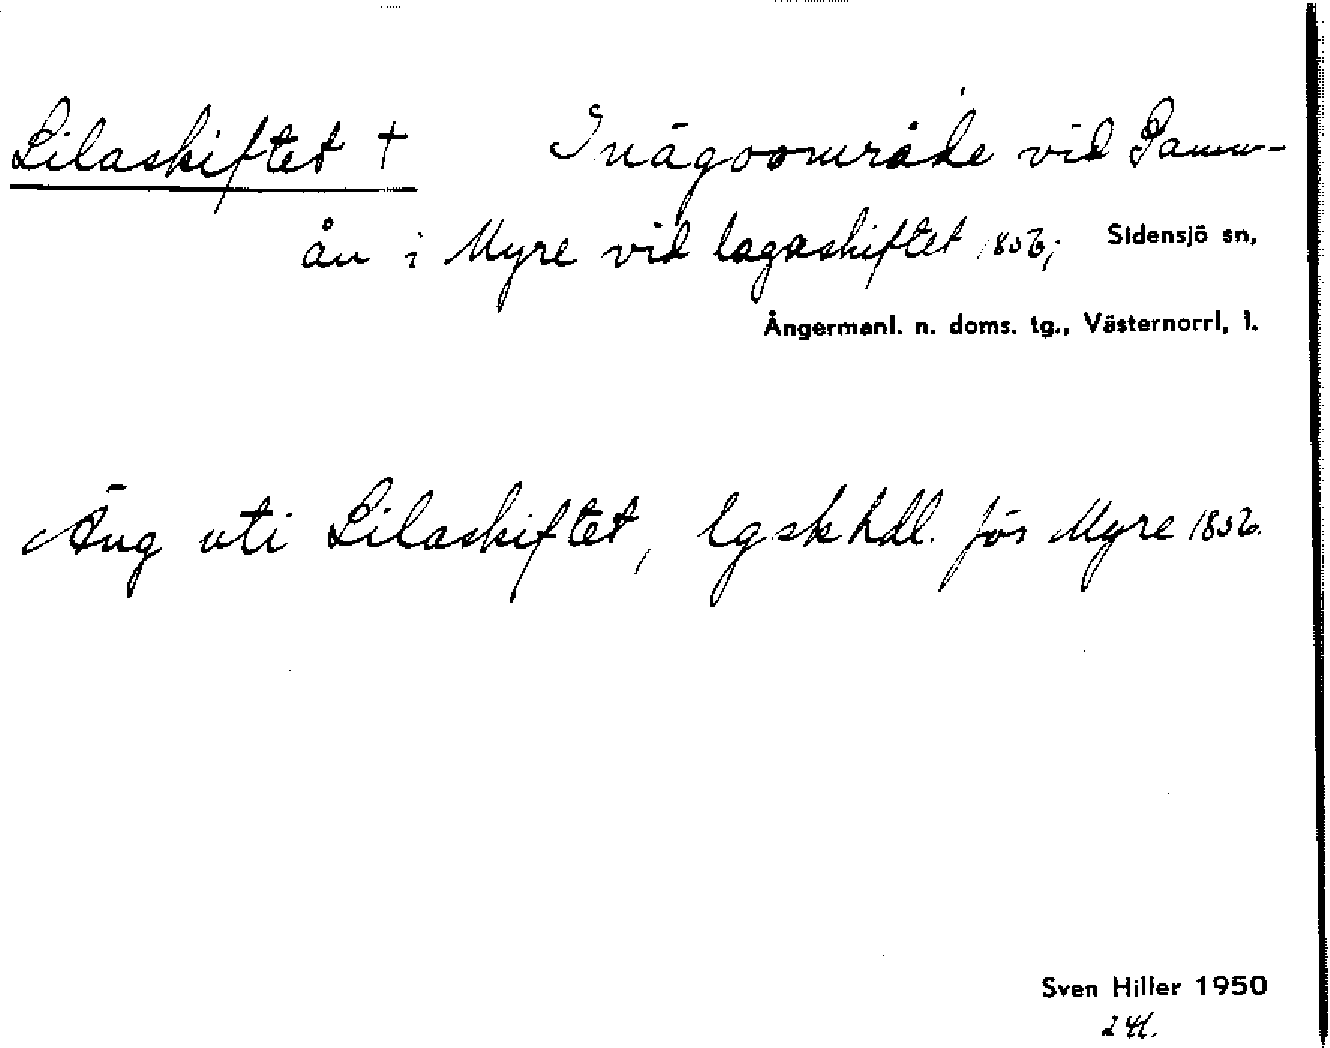 Lilaskiftet † Inägoområde vid
ån i Myre vid lagaskiftet 1856; Sidensjö sn,
Ångermanl. n. doms. tg., Västernorrl, l.
Äng uti Lilaskiftet, lgsk hdl. förs Myre 1856.
Sven Hiller 1950